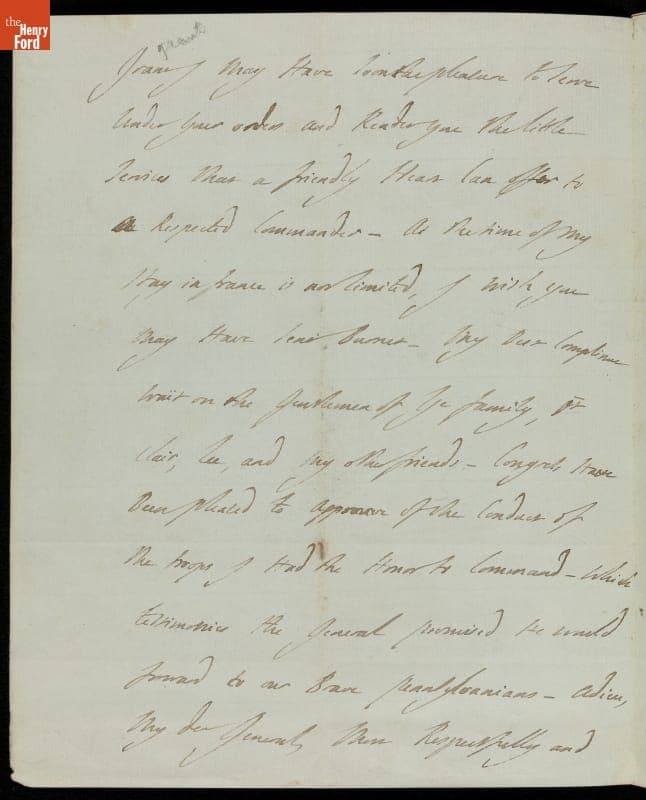 the
Henry
Ford
grant
I may Have soon the pleasure to serve
Under your orders and Render you the little
Services that a friendly Heart Can offer to
a Respected Commander – As the time of My
Stay in france is not limited, I wish you
May Have sent Burnet – My Best Compliments
Wait on the Gentlemen of Ye family, St
Clair, Lee, and My other friends – Congress Have
Been pleased to approove of the Conduct of
the troops I Had the Honor to Command – Which
testimonies the General promised He would
forward to our Brave Pennsylvanians – Adieu,
My der General, Most Respectfully and